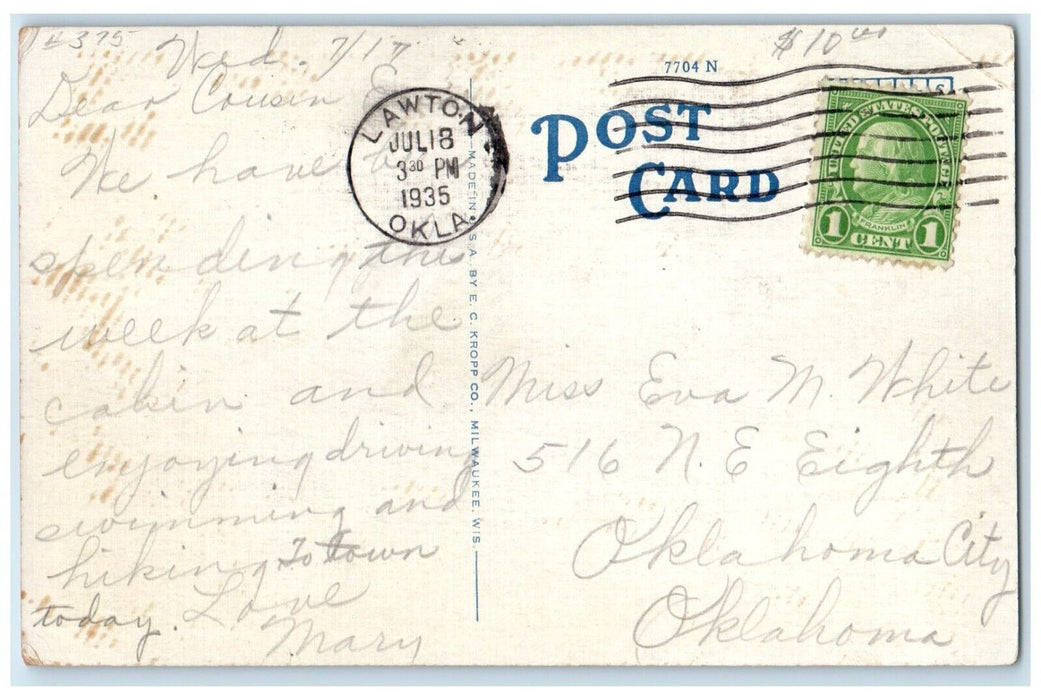 #375
$10.00
Wed. 7/17
Dear Cousin E
We have be
spending the
week at the
cabin and
enjoying driving
swimming and
hiking To town
today. Love
Mary
LAWTON
JUL 18
3 30 PM
1935
OKLA.
MADE IN U.S.A. BY E. C. KROPP CO., MILWAUKEE, WIS.
7704 N
POST
CARD
UNITED STATES POSTAGE
FRANKLIN
1 CENT 1
Miss Eva M. White
516 N. E Eighth
Oklahoma City
Oklahoma